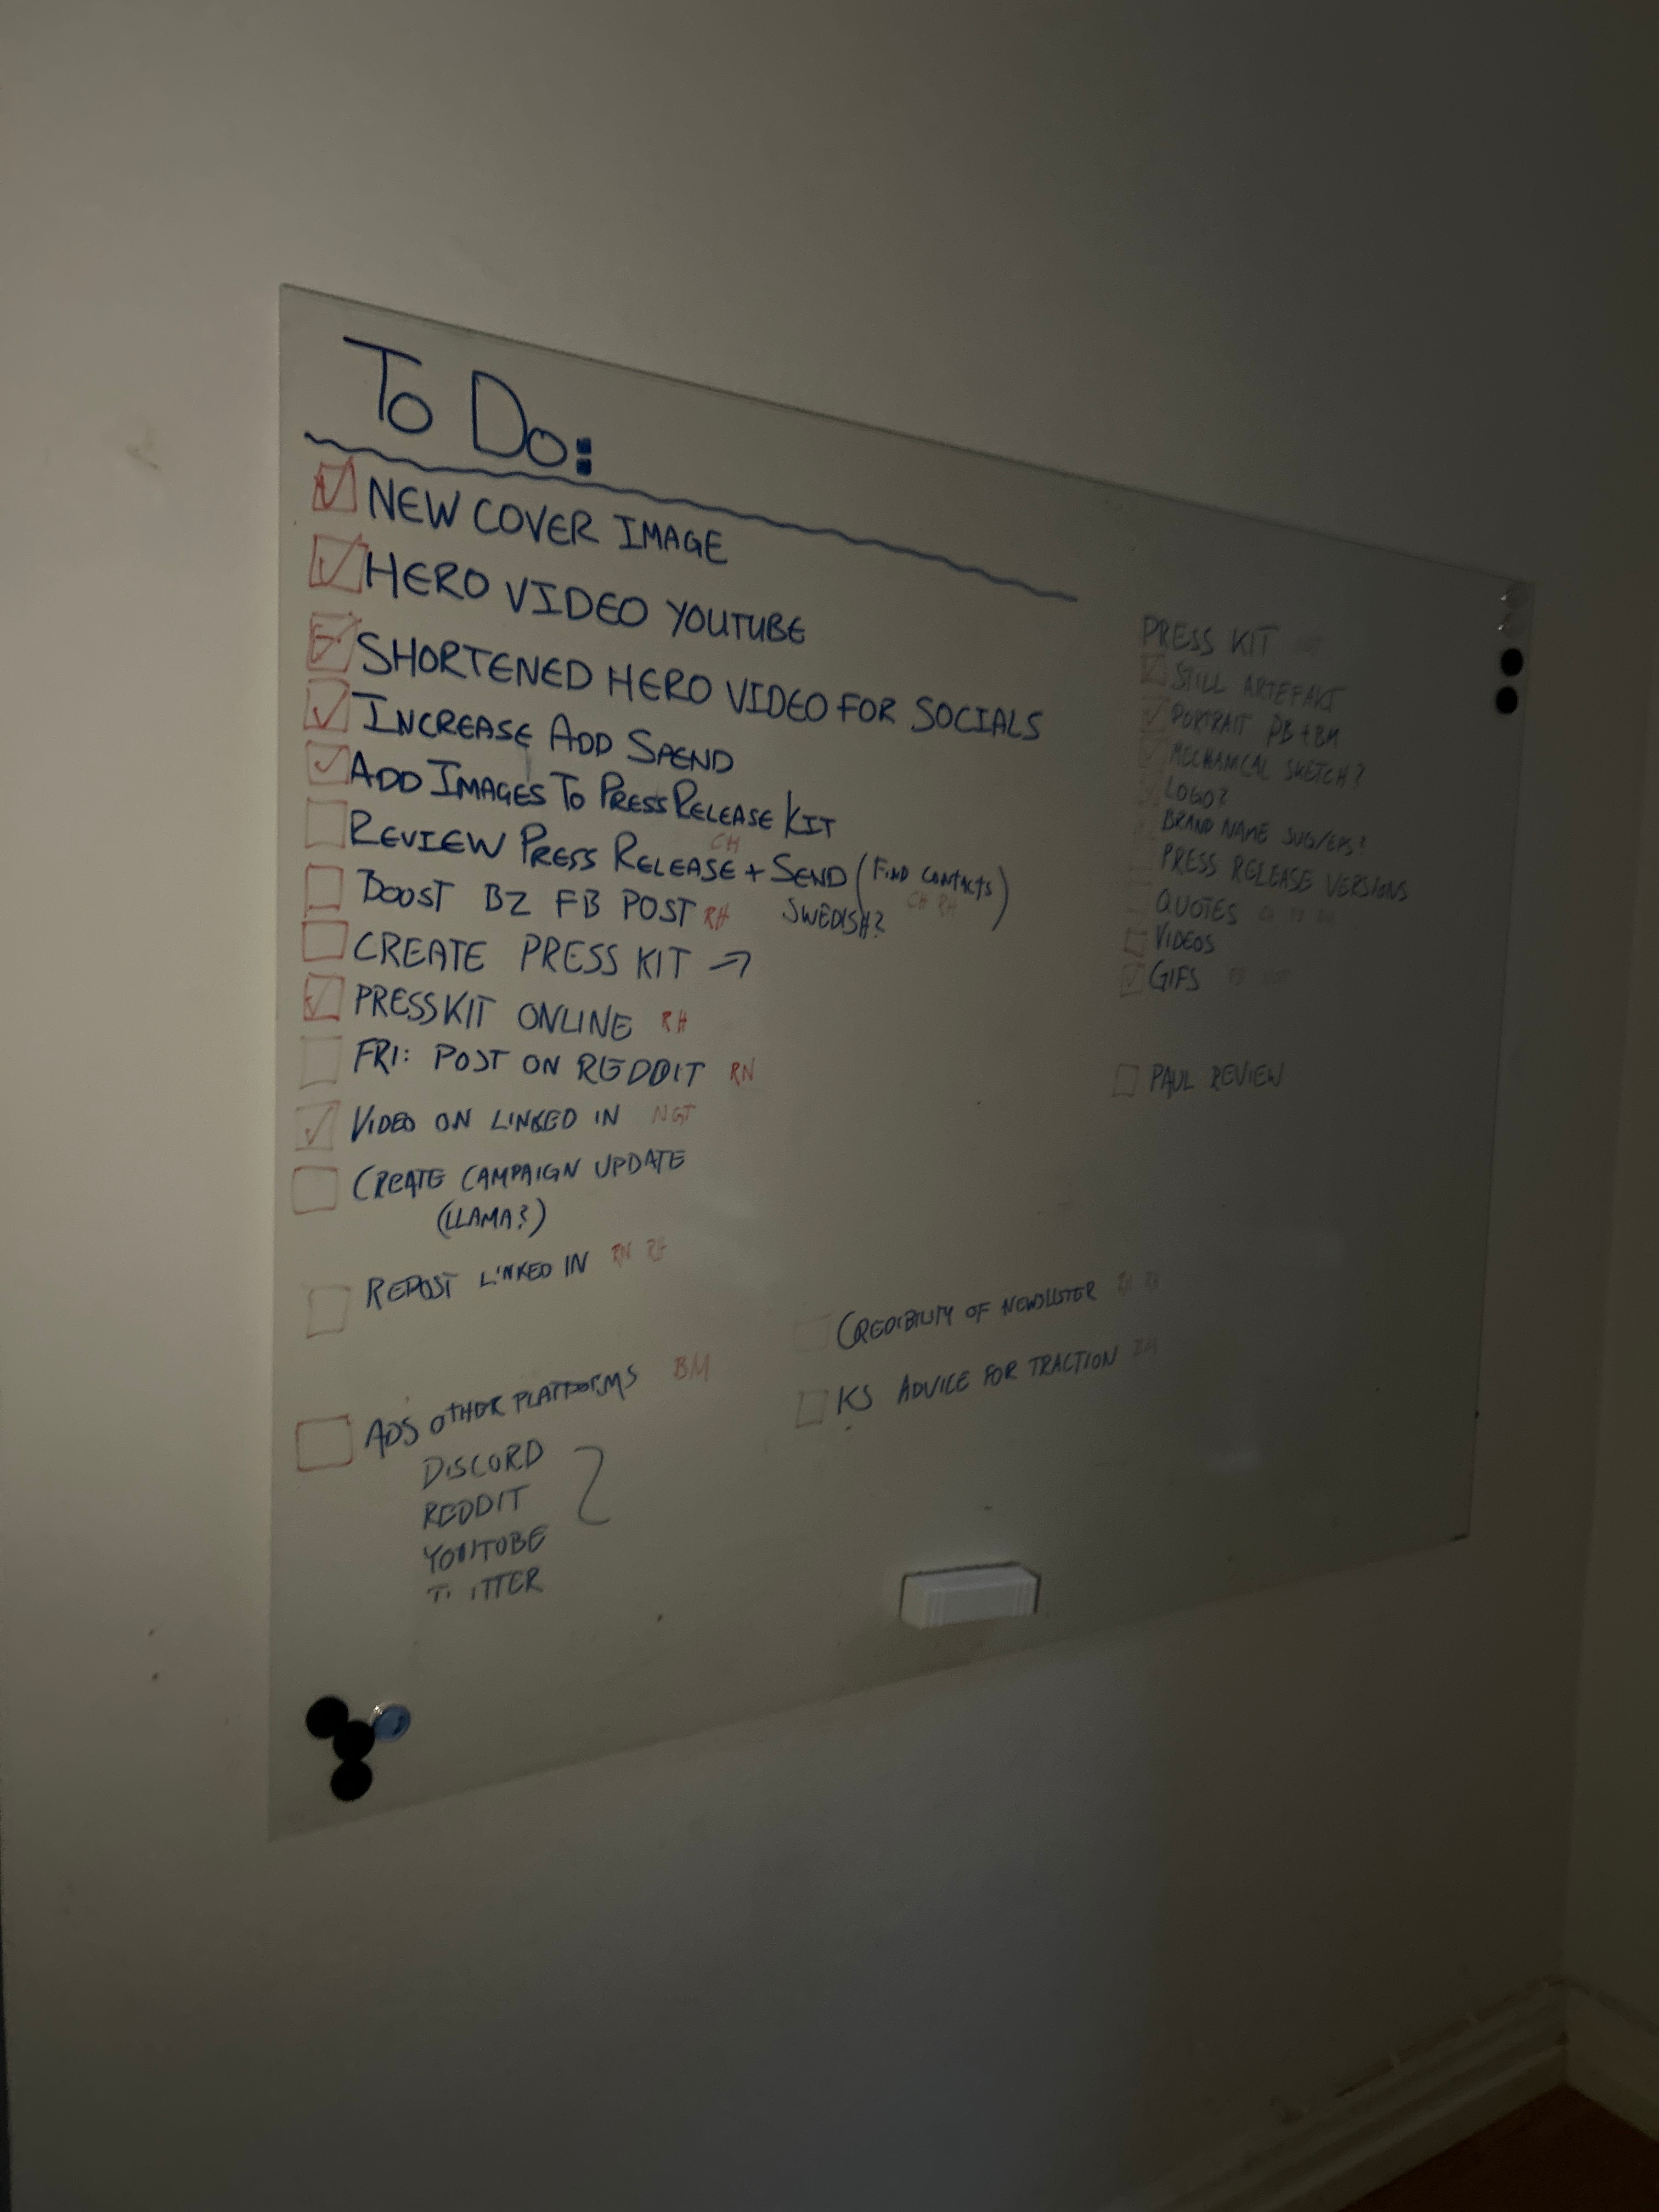 To Do:
NEW COVER IMAGE
HERO VIDEO YOUTUBE
SHORTENED HERO VIDEO FOR SOCIALS
INCREASE ADD SPEND
ADD IMAGES TO PRESS RELEASE KIT
CH
REVIEW PRESS RELEASE + SEND (FIND CONTACTS)
CH RH
SWEDISH?
BOOST BZ FB POST RH
CREATE PRESS KIT →
PRESSKIT ONLINE RH
FRI: POST ON REDDIT RN
VIDEO ON LINKED IN NGT
CREATE CAMPAIGN UPDATE
(LLAMA?)
REPOST LINKED IN RN RH
ADS OTHER PLATFORMS BM
DISCORD
REDDIT
YOUTUBE
TWITTER
CREDIBILITY OF NEWSLISTER
KS ADVICE FOR TRACTION
PRESS KIT
STILL ARTEFAKT
PORTRAIT PB + BM
MECHANICAL SKETCH?
LOGO?
BRAND NAME SVG/EPS?
PRESS RELEASE VERSIONS
QUOTES
VIDEOS
GIFS
PAUL REVIEW